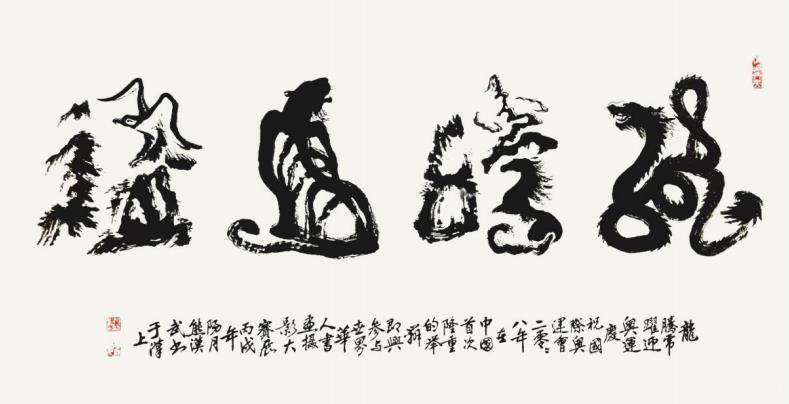 龍騰虎躍
龍
騰虎
躍迎
奧運
慶
祝國
際奧
運會
二零零
八年
在
中國
首次
隆重
的舉
辦
即興
參与
世界
華
人書
畫攝
影大
賽展
丙戌
年
陽月
熊漢
武書
于漢
上